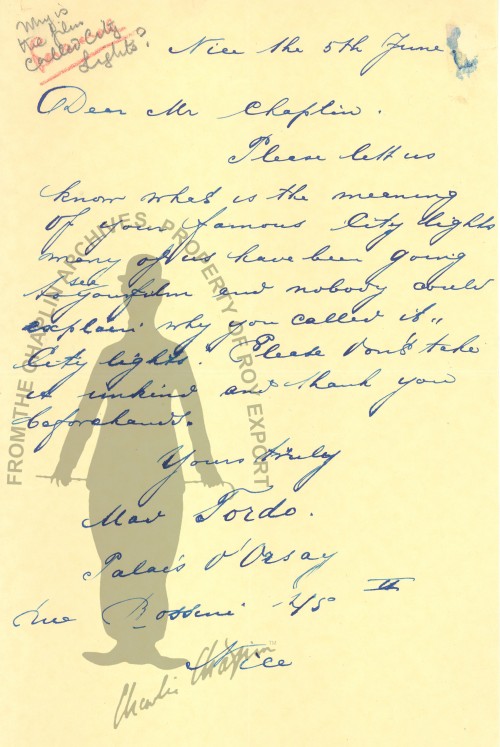 Why is
the film
Called City
Lights?
Nice the 5th June
Dear Mr Chaplin.
Please lett us
know what is the meaning
of your famous City lights
many of us have been going
see
to your film and nobody could
explain why you called it "
City lights. Please don't take
it unkind and thank you
beforehands.
Yours truly
Tordo.
Palais d'Orsay
rue Rossini
Nice
FROM THE CHAPLIN ARCHIVES, PROPERTY OF ROY EXPORT
Charlie Chaplin™